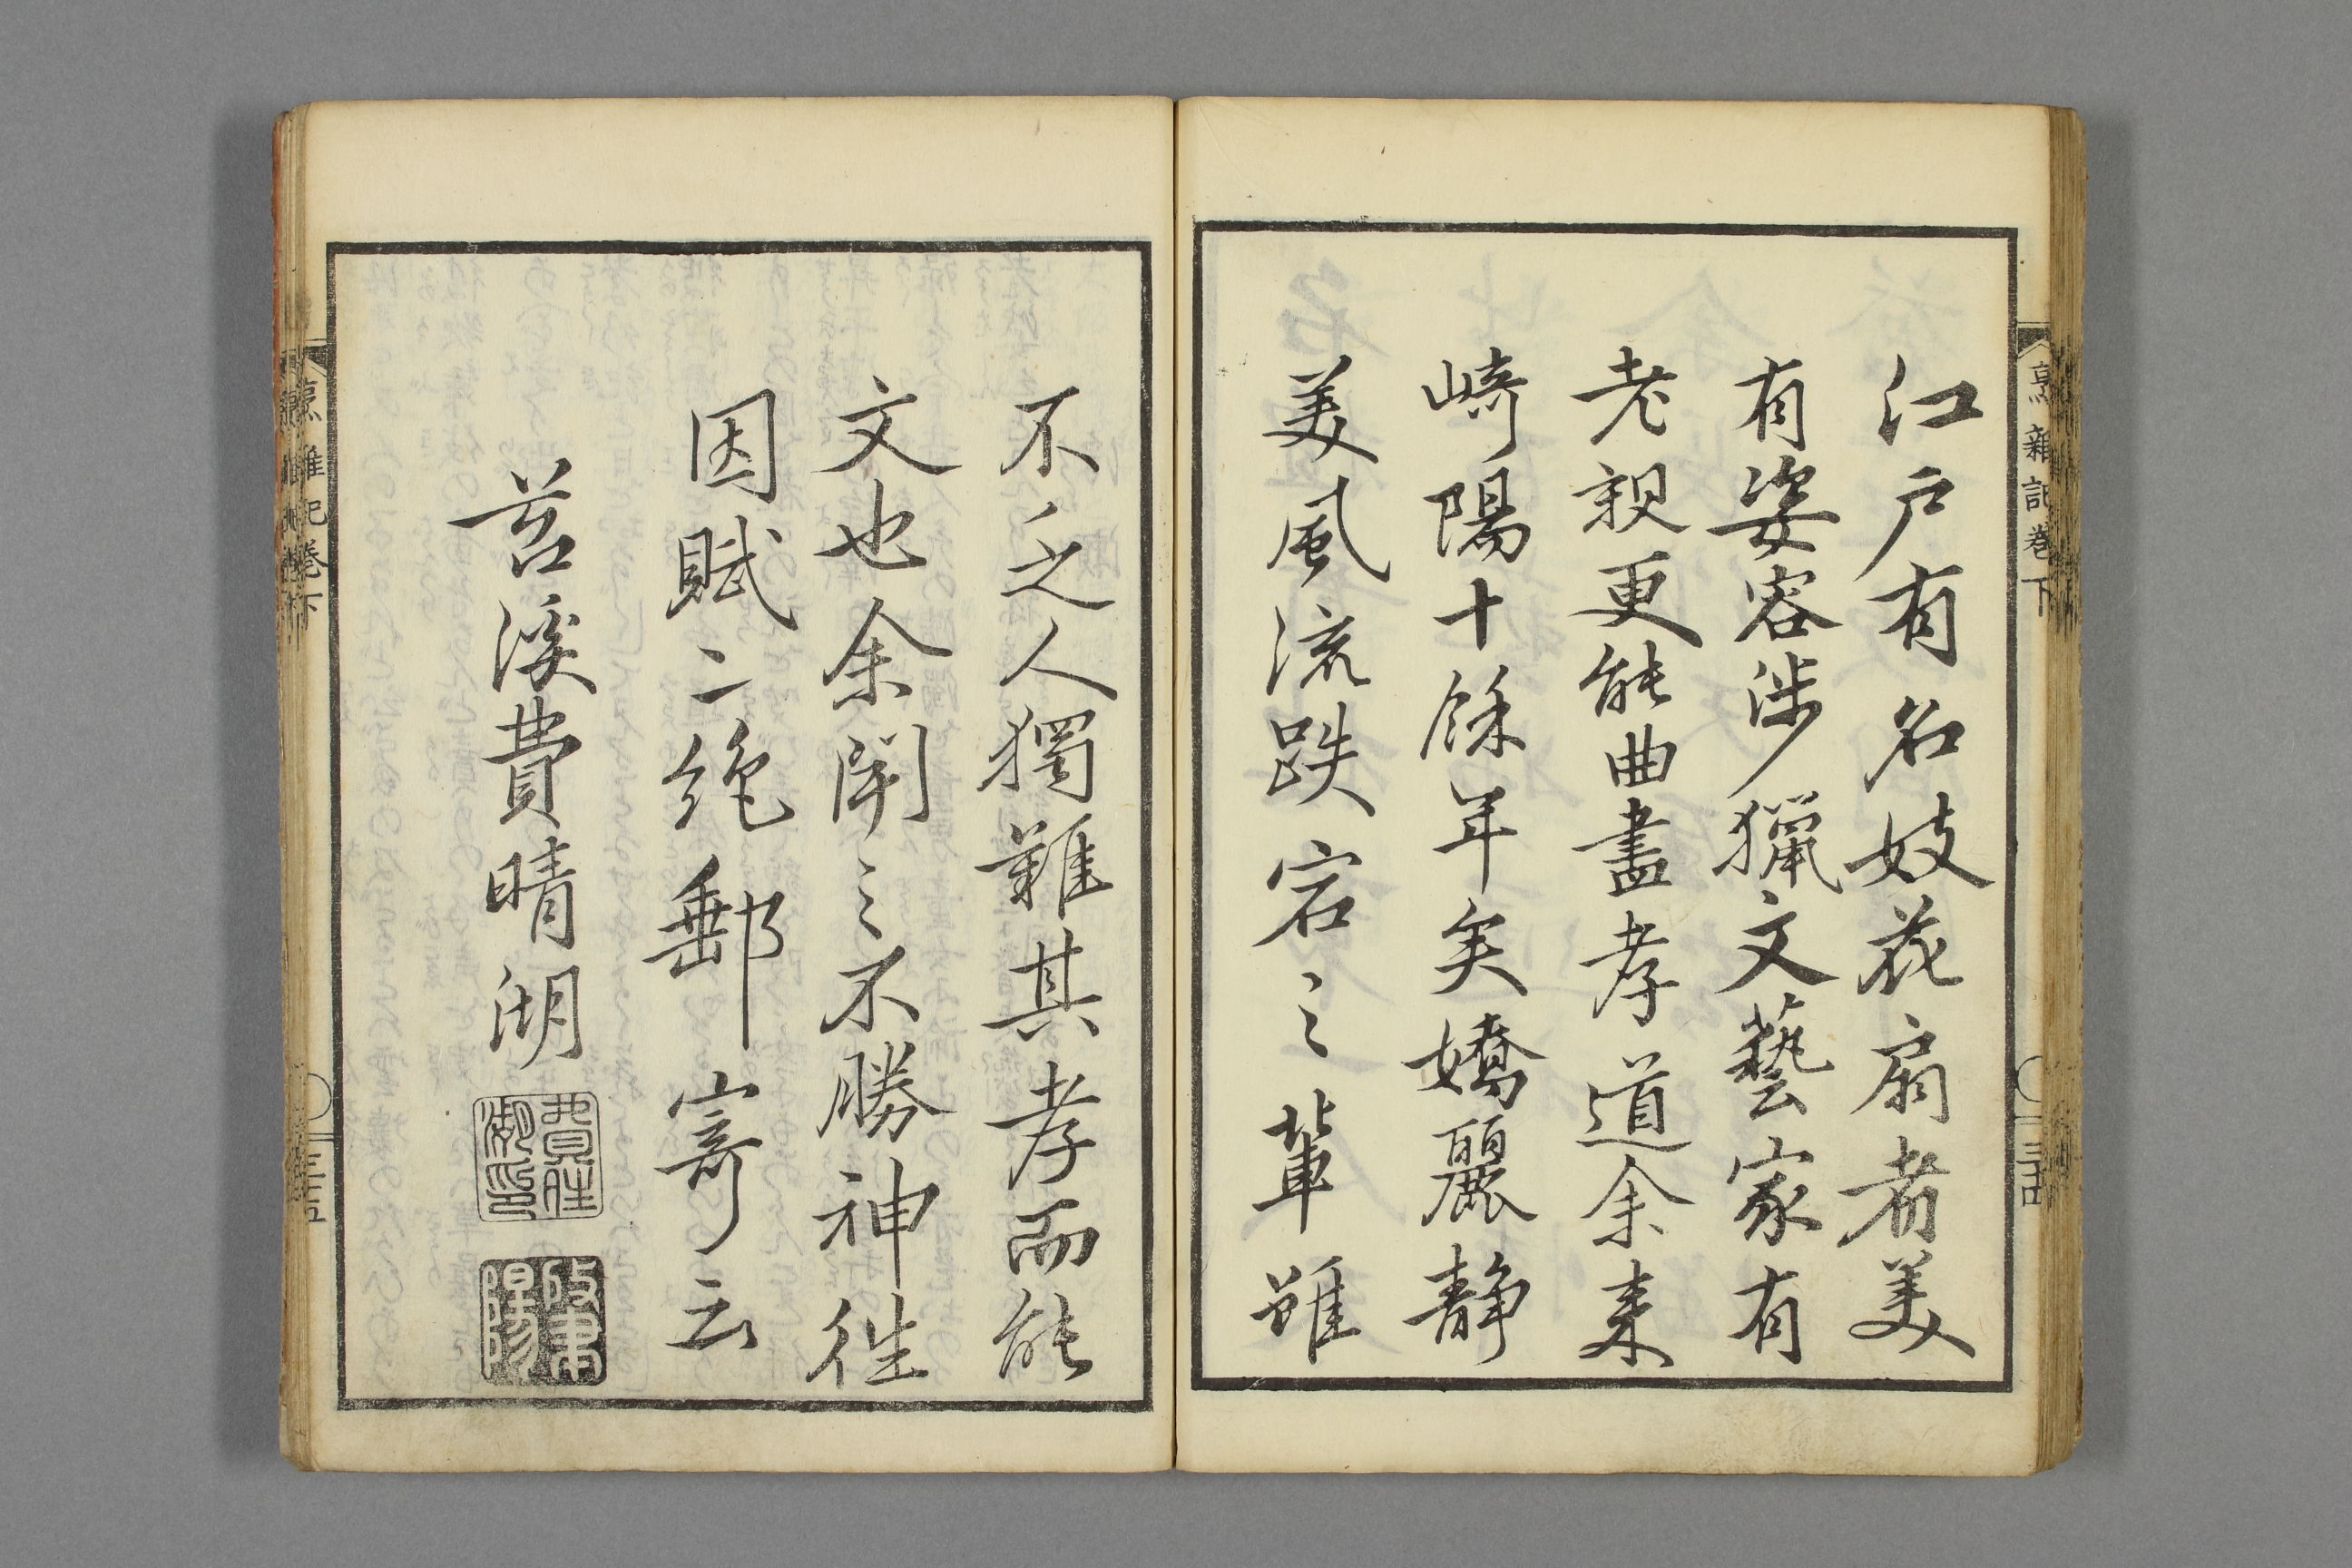 烹雜記卷下
三十四
江戸有名妓花扇者美
有姿容渉獵文藝家有
老親更能曲盡孝道余来
崎陽十餘年矣嬌麗静
美風流跌宕之輩雖
不乏人獨難其孝而能
文也余聞之不勝神往
因賦二絶郵寄云
苕溪費晴湖
烹雜記卷下
三十五